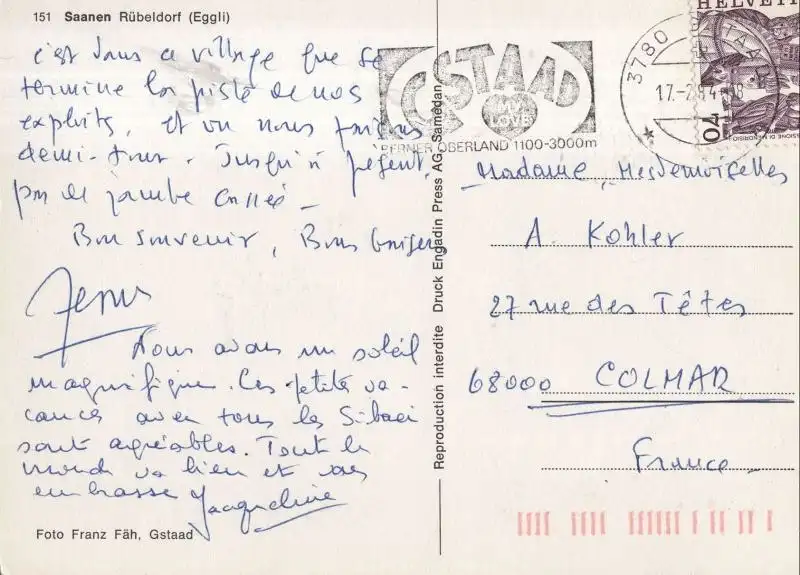 151 Saanen Rübeldorf (Eggli)
c'est dans ce village que se
termine la piste de nos
exploits, et où nous faisons
demi-tour. Jusqu'à présent,
pas de jambe cassée –
Bon souvenir, Bons baisers
Nous avons un soleil
magnifique. Ces petites va-
cances avec tous les
sont agréables. Tout le
monde va bien et vous
embrasse Jacqueline
Foto Franz Fäh, Gstaad
Reproduction Interdite Druck Engadin Press AG, Samedan
HELVETIA
GSTAAD
MY LOVE
BERNER OBERLAND 1100-3000m
3780 GSTAAD
17.-2.
Madame, Mesdemoiselles
A. Kohler
27 rue des Têtes
68000 COLMAR
France